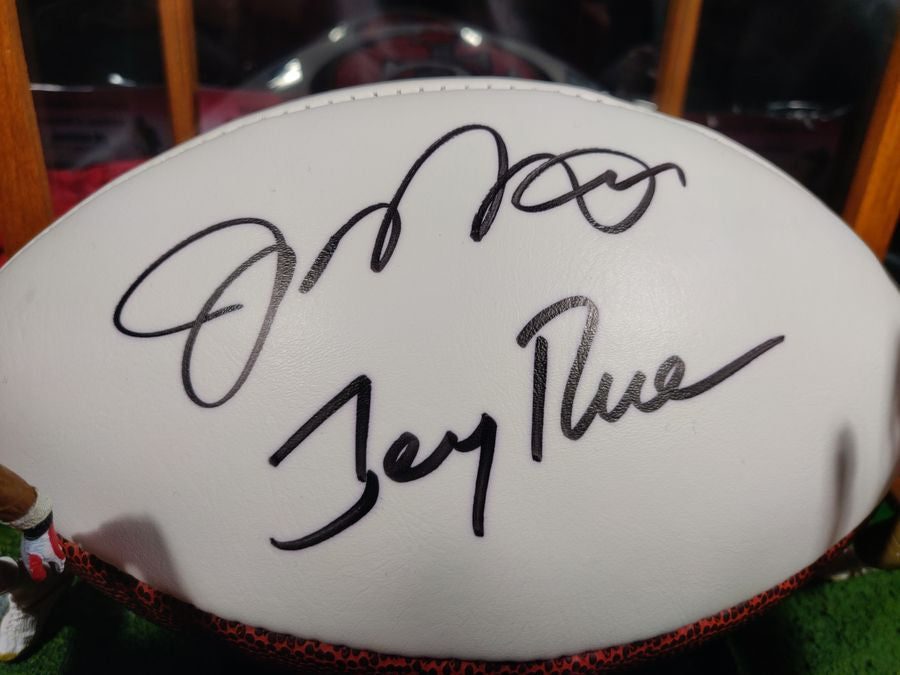 Joe Montana
Jerry Rice